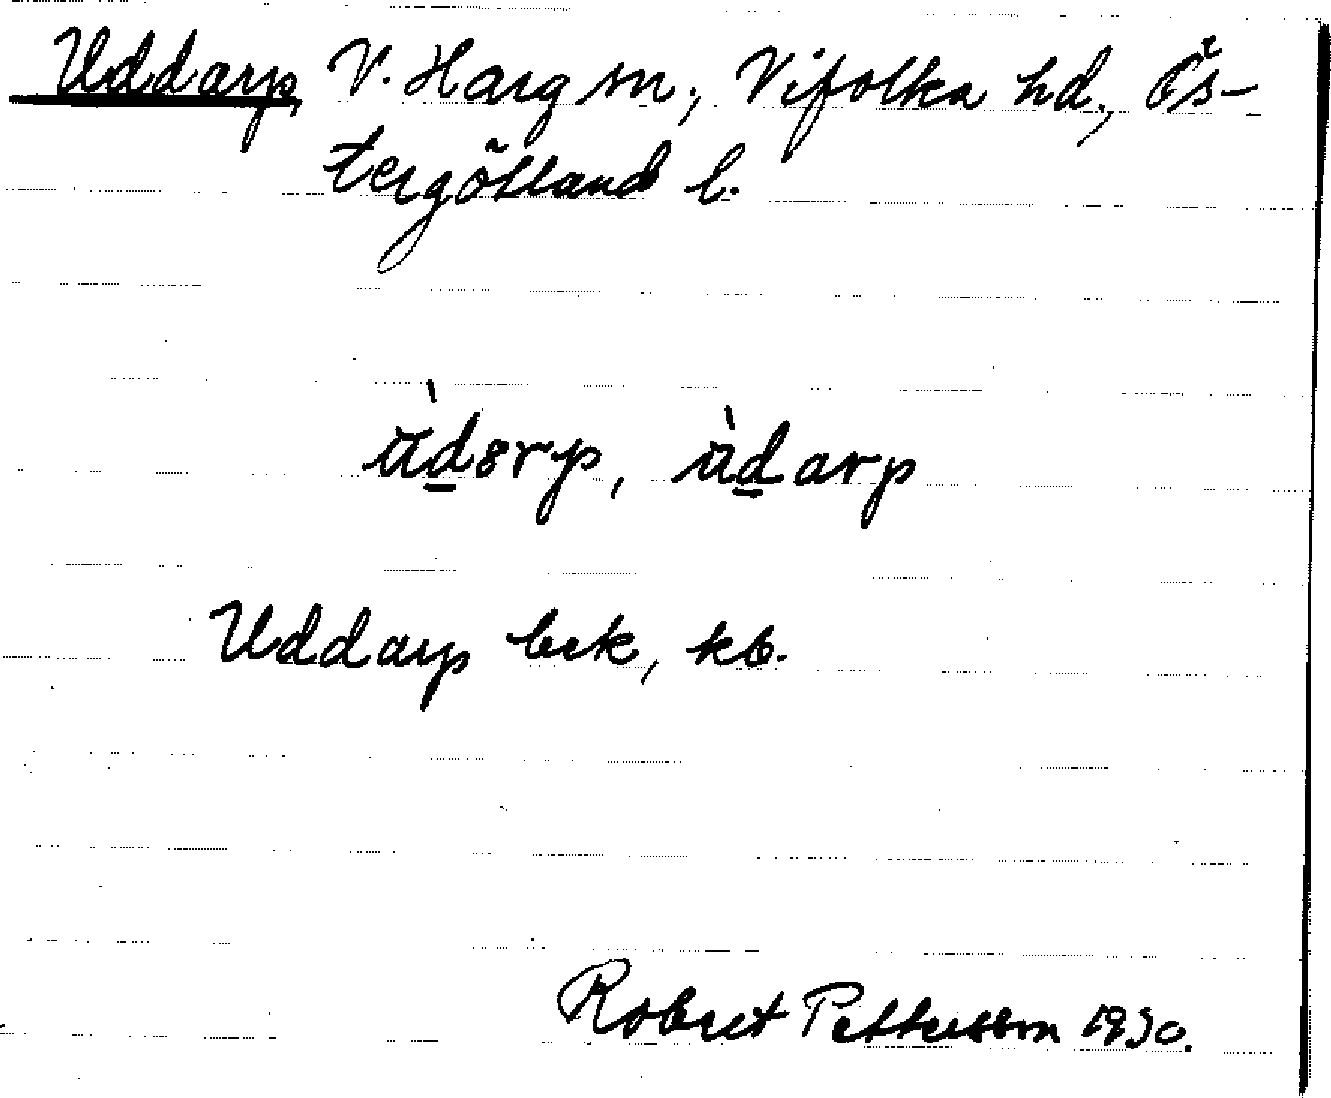 Uddarp, V. Harg sn., Vifolka hd., Ös-
tergötland l.
ùdərp, ùdarp
Uddarp bek, kb.
Robert Pettersson 1930.